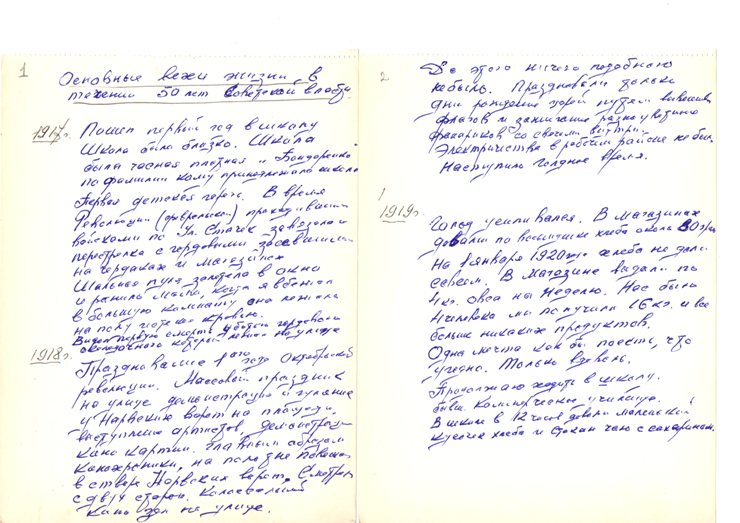 1
Основные вехи жизни, в
течении 50 лет Советской власти.
1917г. Пошел первый год в школу
Школа была близко. Школа
была частная платная и Бондаренко
по фамилии кому принадлежала школа
Первая детская герой. В время
Революции (февральской) проходившим
войсками по Ул. Стачек завязалась
перестрелка с гордовыми засевшими
на чердаках и магазинах
Шальная пуля залетела в окно
и ранила мать, когда я вбежал
в большую комнату она лежала
на полу истекая кровью.
Видел первую смерть убитого городового
околодочного который лежал на улице
1918г. Празднование 1го года Октябрьской
революции. Массовый праздник
на улице демонстрация и гуляние
у Нарвских ворот на площади,
выступление артистов, демонстрация
кино картин. Главным образом
кинохроники, на полотне
в створе Нарвских ворот. Смотрели
с двух сторон. Колосальный
кино зал на улице.
2
До этого ничего подобного
небыло. Праздновали только
дни рождение царей путем вывешив.
флагов и зажигания разноцветных
фонариков со свечами внутри.
Электричества в рабочем районе не был.
Наступило голодное время.
1919г. Голод усиливался. В магазинах
давали по восмушке хлеба около 50 гр.
На 1 января 1920 года хлеба не дали
совсем, В магазине выдали по
4 кг. овса на неделю. Нас было
4 человека мы получили 16 кг. и все
больше никаких продуктов.
Одна мечта как бы поесть, что
угодно. Только вдоволь.
Продолжаю ходить в школу.
бывш. Коммерческое училище.
В школе в 12 часов давали маленький
кусочек хлеба и стакан чаю с сахарином.